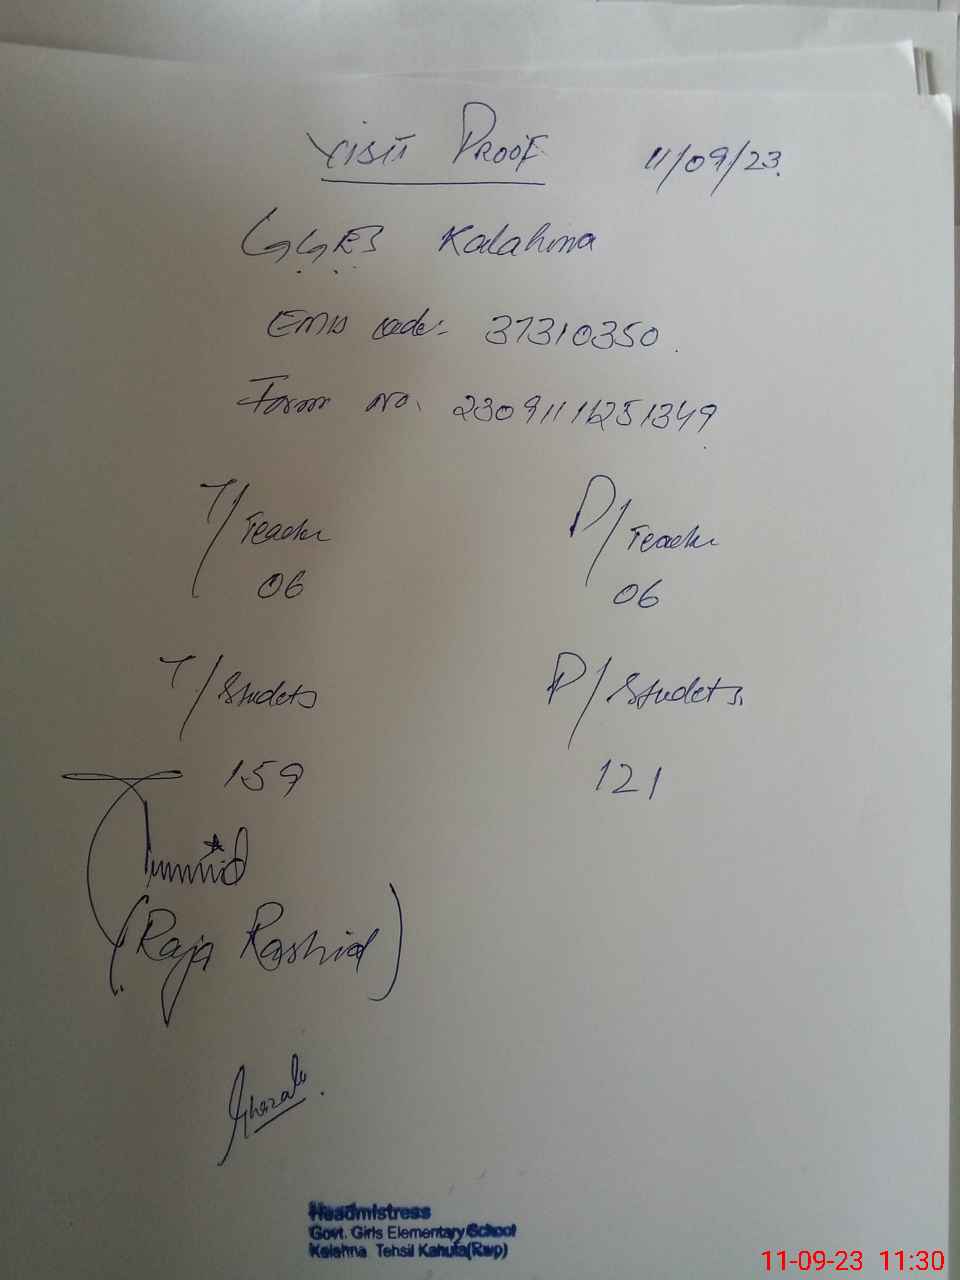 VISIT PROOF 11/09/23.
GGES Kalahna
EMIS code:- 37310350.
Form No. 23091116251349
T/Teacher P/Teacher
06 06
T/Studets P/Studets.
159 121
(Raja Rashid)
Ghazala.
Headmistress
Govt. Girls Elementary School
Kalahna Tehsil Kahuta(Rwp)
11-09-23 11:30